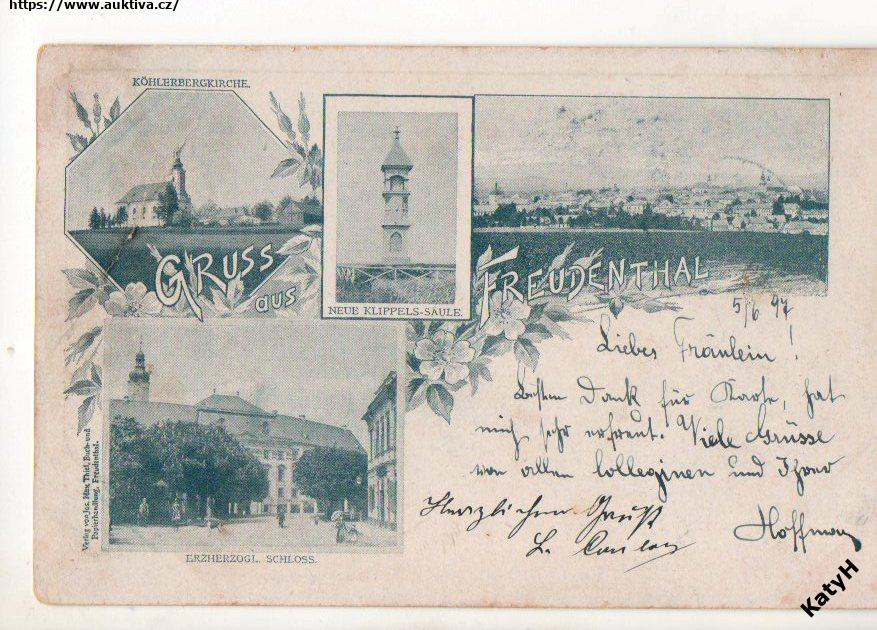 https://www.auktiva.cz/
KÖHLERBERGKIRCHE.
GRUSS
aus
NEUE KLIPPELS-SÄULE.
FREUDENTHAL
5/6 97
Liebes Fräulein!
Besten Dank für Karte, hat
mich sehr erfreut. Viele Grüsse
von allen Colleginen und Ihrer
Hoffman
Herzlichen Gruß
L.
ERZHERZOGL. SCHLOSS.
Verlag von Jos. Max Thiel, Buch- und
Papierhandlung, Freudenthal.
KatyH